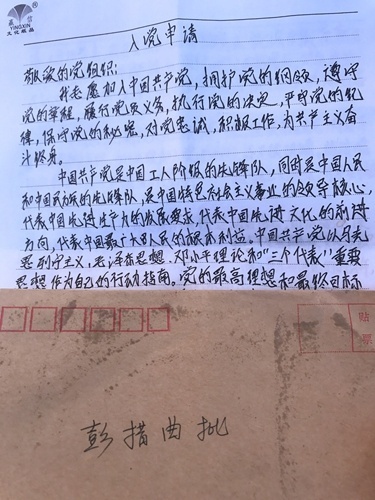 盈信
YINGXIN
文化纸品
入党申请
敬爱的党组织:
我志愿加入中国共产党,拥护党的纲领,遵守
党的章程,履行党员义务,执行党的决定,严守党的纪
律,保守党的秘密,对党忠诚,积极工作,为共产主义奋
斗终身。
中国共产党是中国工人阶级的先锋队,同时是中国人民
和中华民族的先锋队,是中国特色社会主义事业的领导核心,
代表中国先进生产力的发展要求,代表中国先进文化的前进
方向,代表中国最广大人民的根本利益。中国共产党以马克
思列宁主义、毛泽东思想、邓小平理论和“三个代表”重要
思想作为自己的行动指南。党的最高理想和最终目标
贴
票
彭措曲批